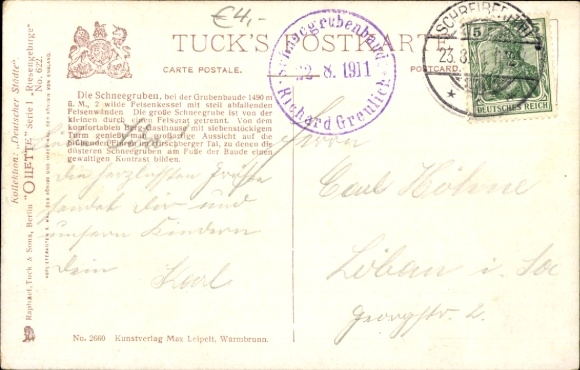 €4,-
TUCK'S POSTKARTE
CARTE POSTALE.
POSTCARD.
Schneegrubenbaude
22. 8. 1911
Richard Grenlich
SCHREIBERHAU
23.8.
5
DEUTSCHES REICH
Kollektion: „Deutscher Städte“
"OILETTE" Serie I „Riesengebirge“
No. 622.
Raphael Tuck & Sons, Berlin
Die Schneegruben, bei der Grubenbaude-1490 m
ü. M., 2 wilde Felsenkessel mit steil abfallenden
Felsenwänden. Die große Schneegrube ist von der
kleinen durch einen Felsgrat getrennt. Von dem
komfortabeln Berggasthaus mit siebenstöckigem
Turm genießt man großartige Aussicht auf die
blühenden Fluren im Hirschberger Tal, zu denen die
düsteren Schneegruben am Fuße der Baude einen
gewaltigen Kontrast bilden.
Die herzlichsten Grüße
sendet Dir und
unsern Kindern
Dein Karl
Herrn
Carl Höhne
Löbau i. Sa
Georgstr. 2.
No. 2660 Kunstverlag Max Leipelt, Warmbrunn.